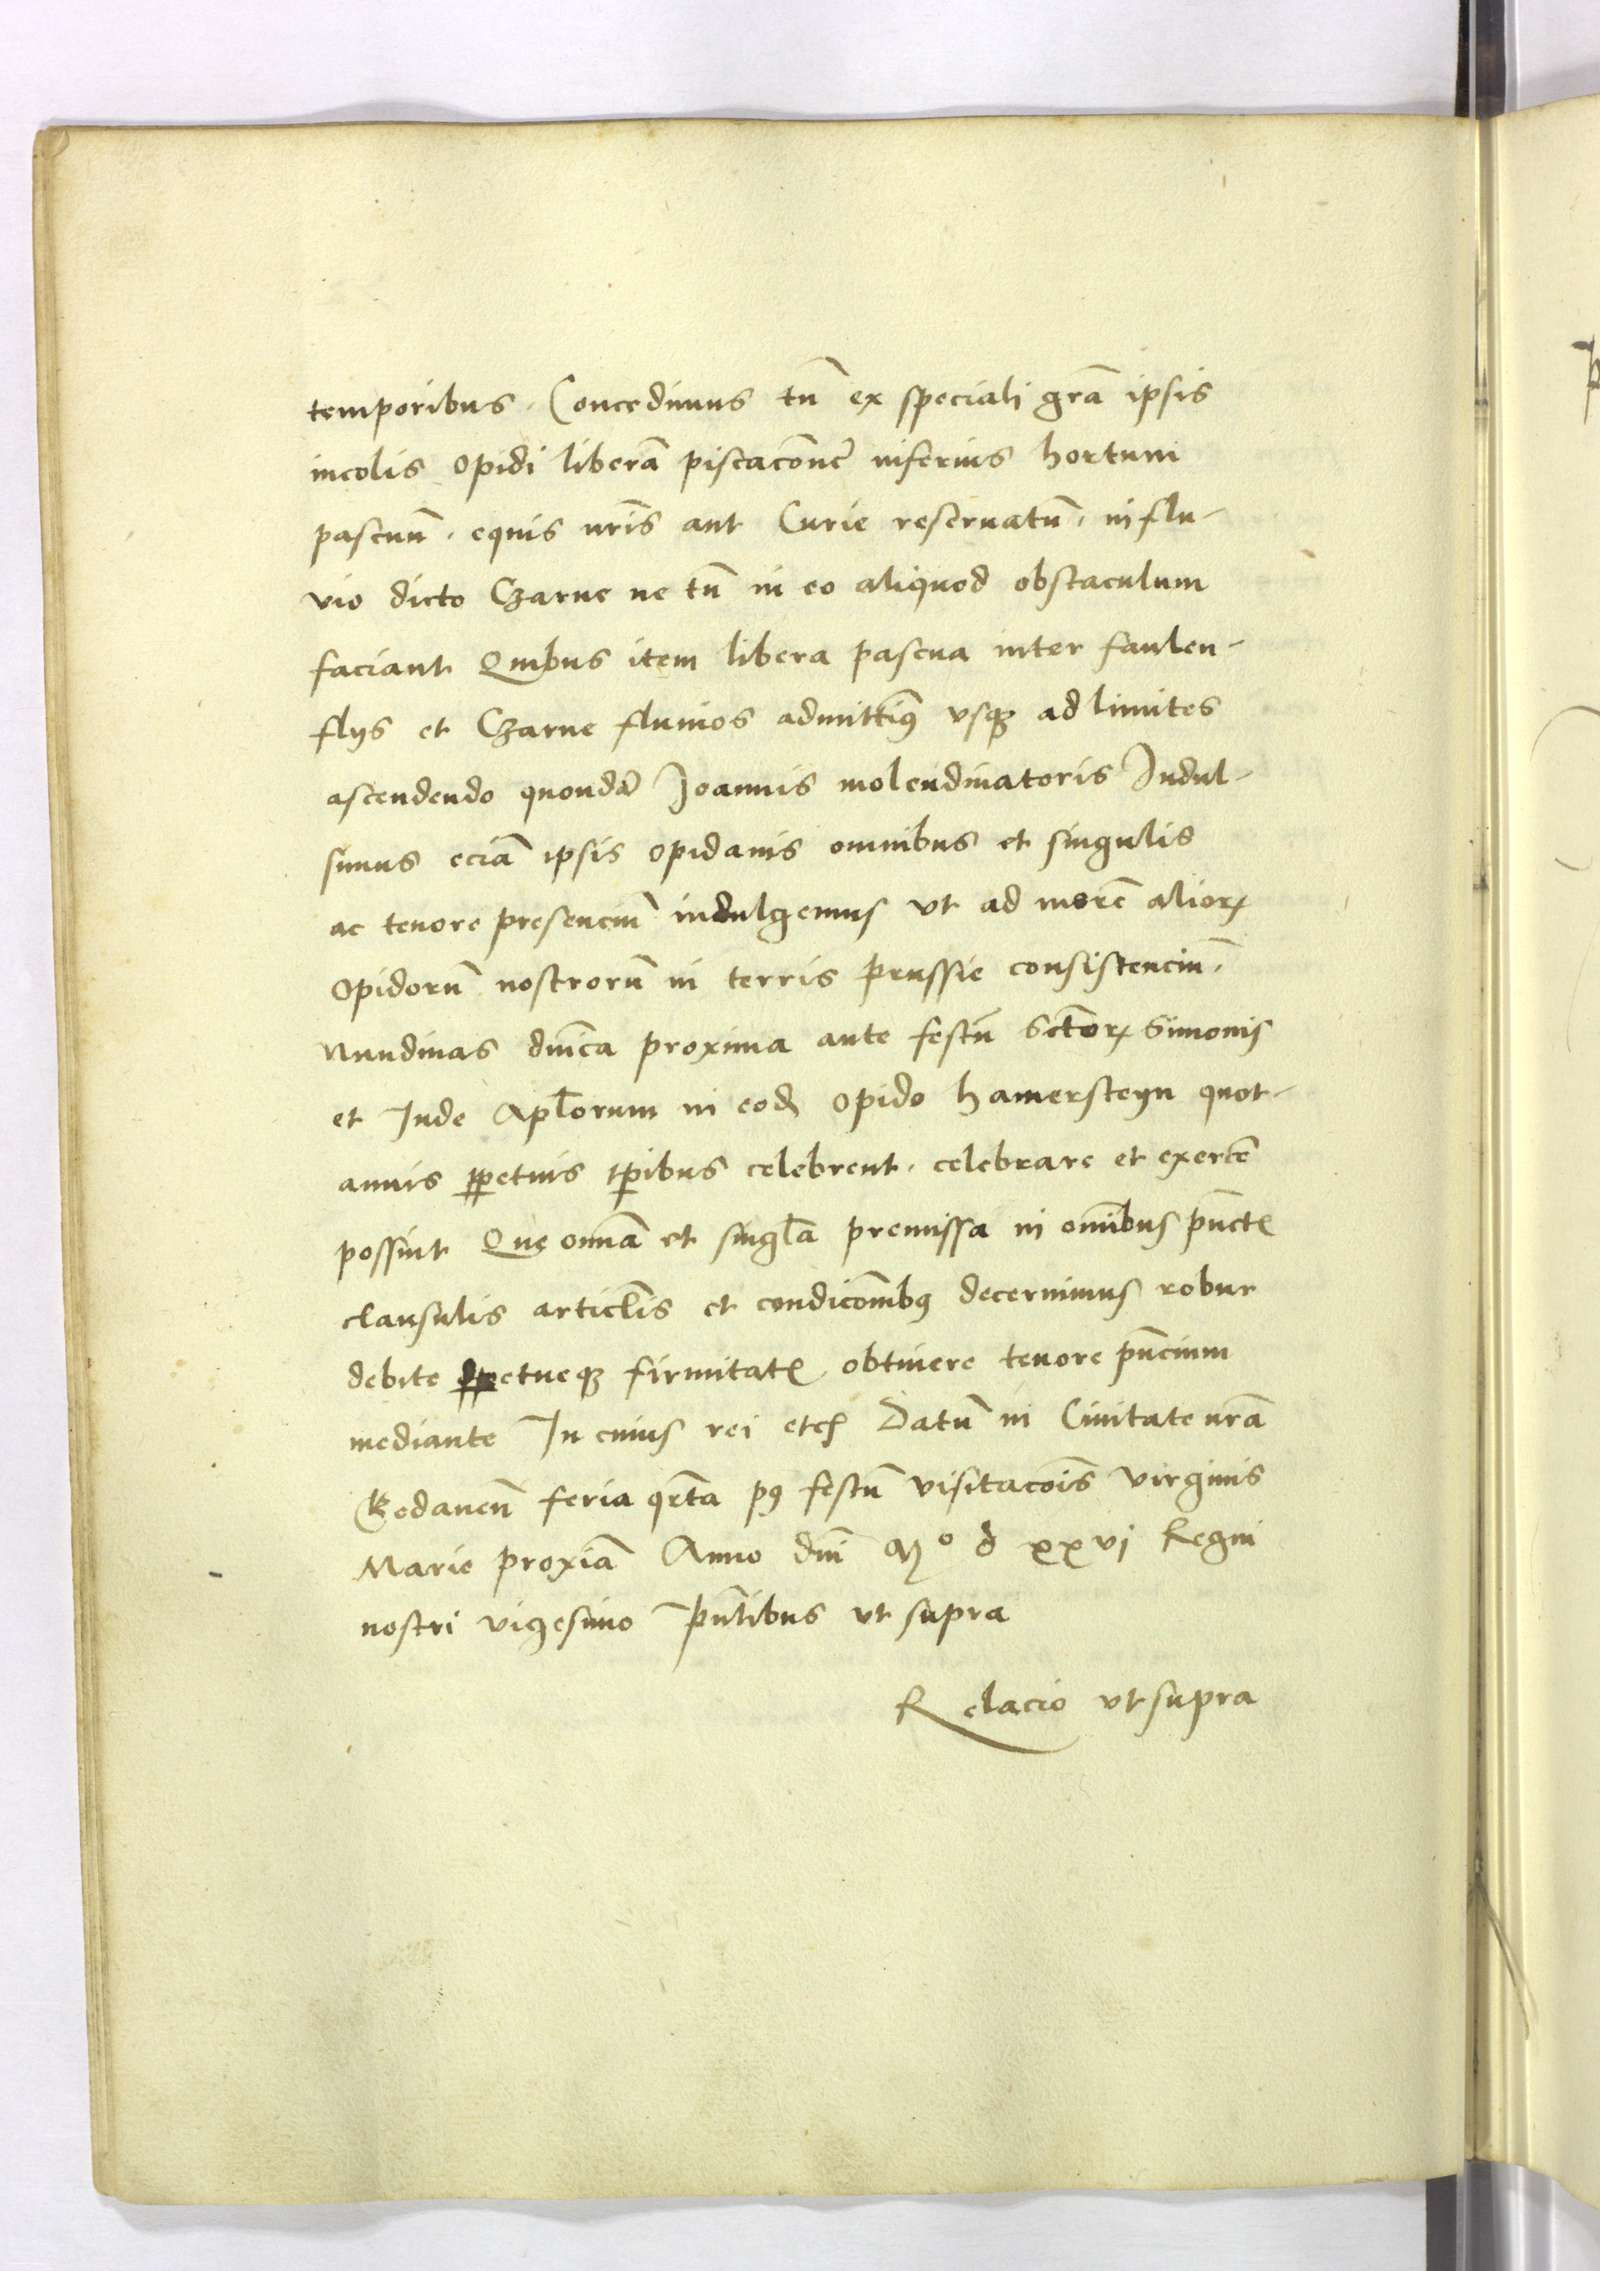 temporibus. Concedimus tn̄ ex speciali grā ipsis
incolis opidi liberā piscacōnē inferius hortum
pascuū. equis nr̄is aut Curie reseruatū, in flu-
vio dicto Czarne ne tn̄ in eo aliquod obstaculum
faciant Quibus item libera pascua inter faulen-
flÿs et Czarne fluuios admittim⁹ vsqꝫ ad limites
ascendendo quondā Joannis molendinatoris Indul-
simus eciā ipsis opidanis omnibus et singulis
ac tenore presenciū indulgemus vt ad morē alioꝝ
opidorū nostrorū in terris prussie consistenciū.
Nundinas dn̄ica proxima ante festū Sctoꝝ Simonis
et Jude Apl̄orum in eodē opido hamersteÿn quot-
annis ꝑpetuis tp̄ibus celebrent. celebrare et exercē
possint Que om̄ia et singl̄a premissa in om̄ibus punctē
clausulis articl̄is et condicōnib⁹ decernimus robur
debite ꝑpetueqꝫ firmitatē obtinere tenore pn̄cium
mediante In cuius rei etc̄ Datū in Ciuitate nr̄a
Gedanen̄ feria qr̄ta p⁹ festū visitacōis virginis
Marie proxiā Anno dn̄i Mº d xxvj Regni
nostri vigesimo Pn̄tibus vt supra
Relacio vt supra